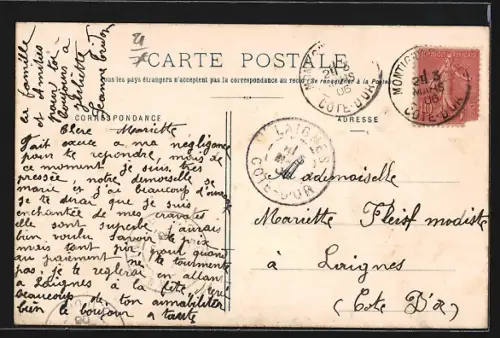 CARTE POSTALE
Tous les pays étrangers n'acceptent pas la correspondance au recto (se renseigner à la Poste)
CORRESPONDANCE
ADRESSE
MONTIGNY
21 3
MARS
06
COTE-D'OR
MONTIGNY
21 3
MARS
06
COTE-D'OR
LAIGNES
COTE-D'OR
Chère Mariette
Fait excuse a ma negligance
pour te repondre, mais de
ce moment je suis très
pressée, notre demoiselle se
marie et j'ai beaucoup d'ouvrage
je te dirai que je suis
enchantée de mes cravates
elle sont superbe j'aurais
bien voulu savoir le prix
mais tant pis, pour quant
au paiement ne te tourmente
pas, je te reglerai en allant
a Laignes à la fête, merci
beaucoup de ton amabilité
bien le bonjour a tante
sa famille
et Amities
pour toi
Toujours à
Jeanne
Mademoiselle
Mariette modiste
à Laignes
(Cote D'Or)